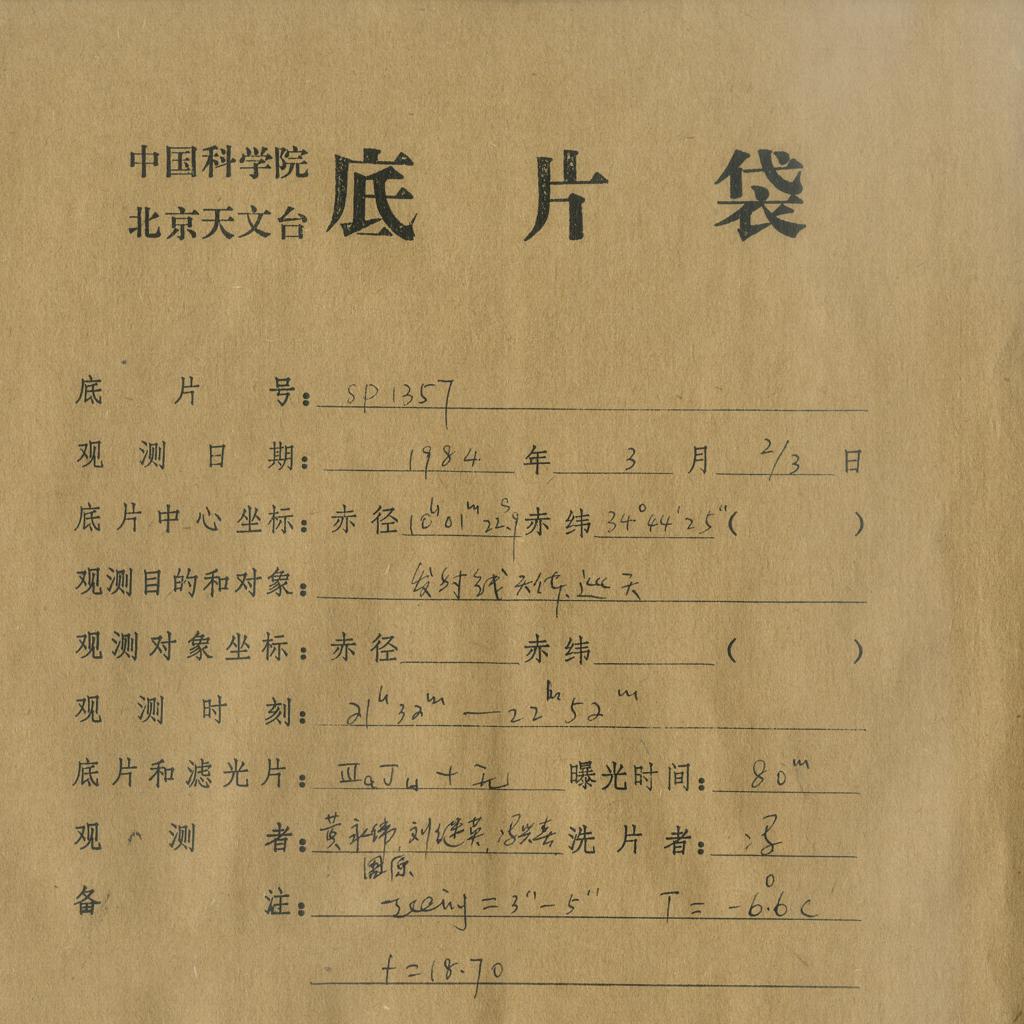 中国科学院
北京天文台
底片袋
底片号: SP1357
观测日期: 1984年3月2/3日
底片中心坐标: 赤径10ʰ01ᵐ22ˢ.9赤纬34°44′25″( )
观测目的和对象: 发射线天体巡天
观测对象坐标: 赤径 赤纬 ( )
观测时刻: 21ʰ32ᵐ—22ʰ52ᵐ
底片和滤光片: ⅢaJ + 无 曝光时间: 80ᵐ
观测者: 黄永伟,刘继英, 洗片者: 冯
备注: seeing = 3″-5″ T = -6.6°C
t = 18.70